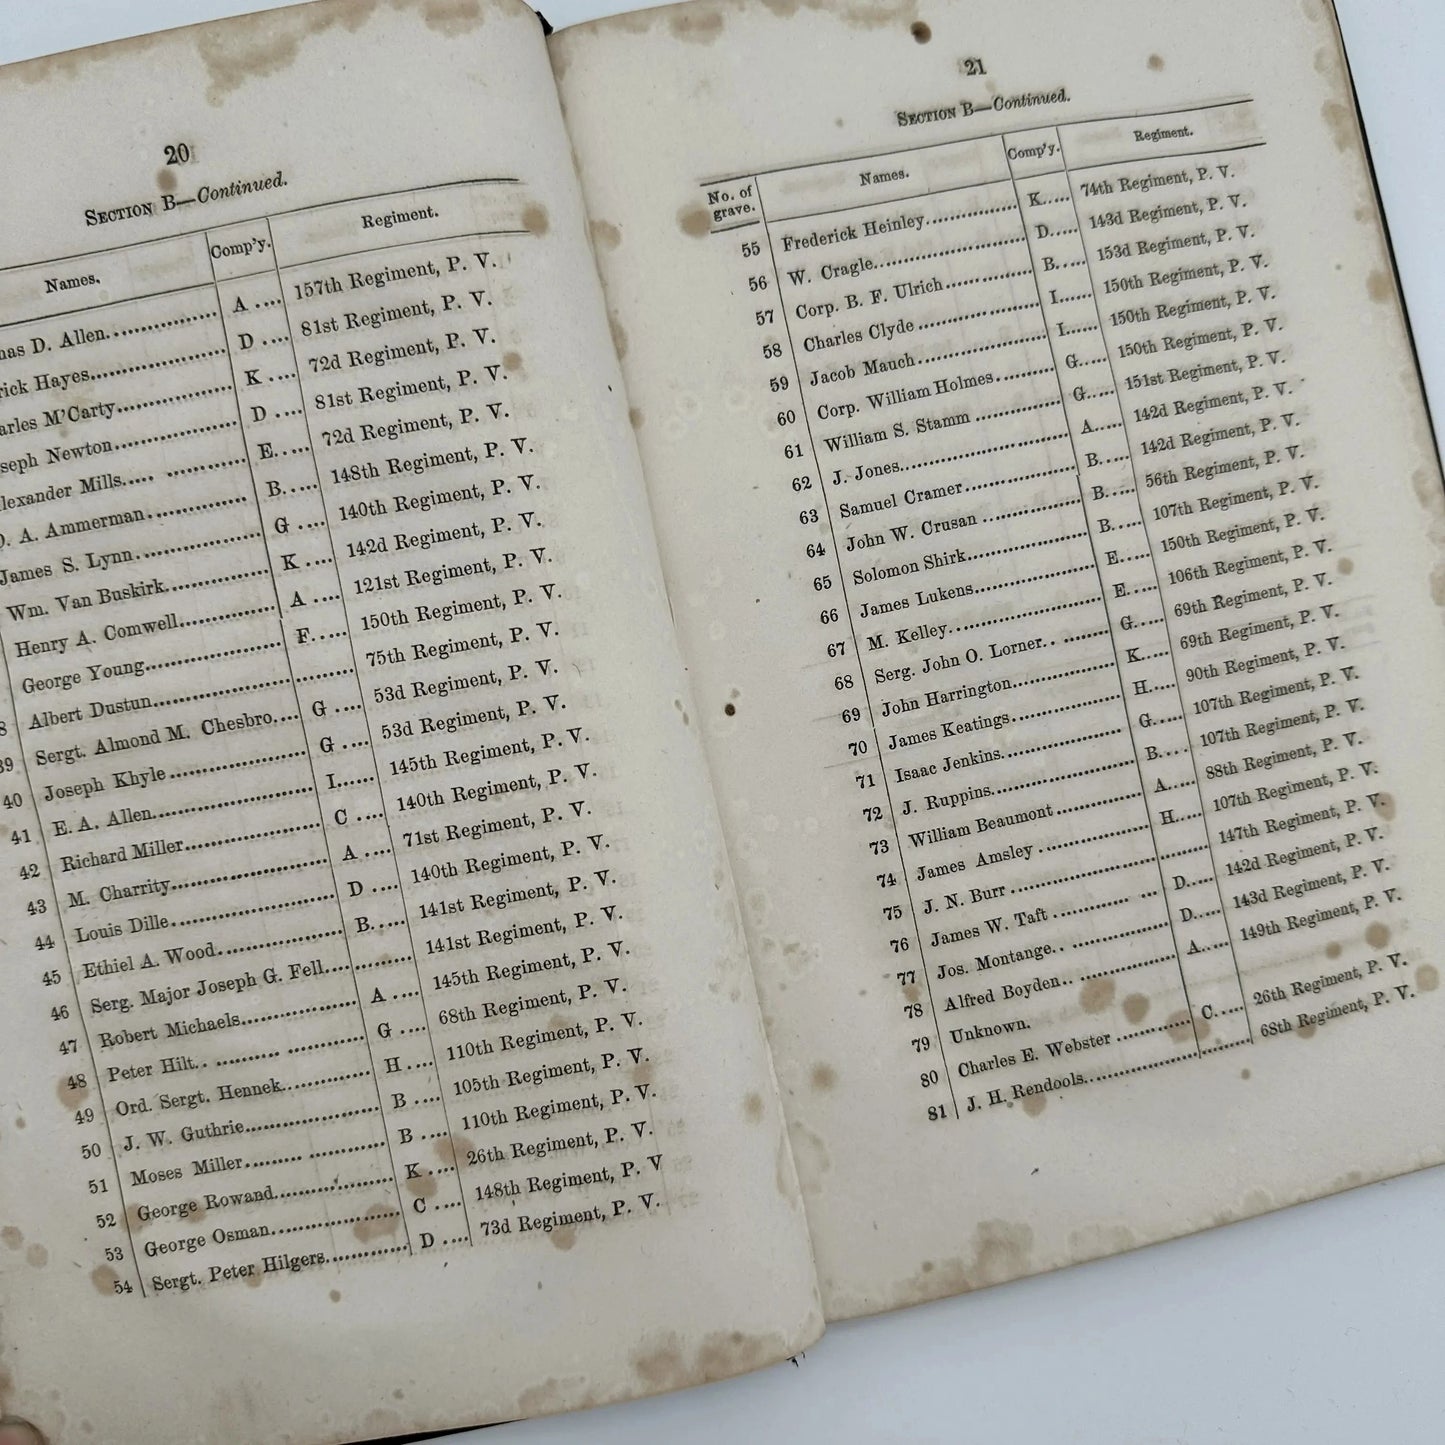 20
SECTION B—Continued.
Names. Comp'y. Regiment.
D. Allen.................. A .... 157th Regiment, P. V.
Hayes...................... D .... 81st Regiment, P. V.
M'Carty.................. K .... 72d Regiment, P. V.
Newton.................. D .... 81st Regiment, P. V.
Alexander Mills..... .............. E..... 72d Regiment, P. V.
A. Ammerman................. B..... 148th Regiment, P. V.
James S. Lynn..................... G .... 140th Regiment, P. V.
Wm. Van Buskirk.................. K .... 142d Regiment, P. V.
Henry A. Comwell................ A .... 121st Regiment, P. V.
George Young...................... F..... 150th Regiment, P. V.
Albert Dustun...................... ......... 75th Regiment, P. V.
39 Sergt. Almond M. Chesbro.... G .... 53d Regiment, P. V.
40 Joseph Khyle ...................... G .... 53d Regiment, P. V.
41 E. A. Allen......................... I...... 145th Regiment, P. V.
42 Richard Miller...................... C .... 140th Regiment, P. V.
43 M. Charrity......................... A .... 71st Regiment, P. V.
44 Louis Dille......................... D .... 140th Regiment, P. V.
45 Ethiel A. Wood................... B..... 141st Regiment, P. V.
46 Serg. Major Joseph G. Fell.... ......... 141st Regiment, P. V.
47 Robert Michaels.................. A .... 145th Regiment, P. V.
48 Peter Hilt.. .......... ............ G .... 68th Regiment, P. V.
49 Ord. Sergt. Hennek............. H.... 110th Regiment, P. V.
50 J. W. Guthrie..................... B .... 105th Regiment, P. V.
51 Moses Miller......... ............ B .... 110th Regiment, P. V.
52 George Rowand.................. K .... 26th Regiment, P. V.
53 George Osman................... C .... 148th Regiment, P. V
54 Sergt. Peter Hilgers............. D .... 73d Regiment, P. V.
21
SECTION B—Continued.
No. of grave. Names. Comp'y. Regiment.
55 Frederick Heinley............... K..... 74th Regiment, P. V.
56 W. Cragle......................... D..... 143d Regiment, P. V.
57 Corp. B. F. Ulrich............... B..... 153d Regiment, P. V.
58 Charles Clyde ................... I...... 150th Regiment, P. V.
59 Jacob Mauch..................... I...... 150th Regiment, P. V.
60 Corp. William Holmes.......... G..... 150th Regiment, P. V.
61 William S. Stamm .............. G..... 151st Regiment, P. V.
62 J. Jones........................... A..... 142d Regiment, P. V.
63 Samuel Cramer.................. B..... 142d Regiment, P. V.
64 John W. Crusan ................ B..... 56th Regiment, P. V.
65 Solomon Shirk................... B..... 107th Regiment, P. V.
66 James Lukens.................... E..... 150th Regiment, P. V.
67 M. Kelley......................... E..... 106th Regiment, P. V.
68 Serg. John O. Lorner.. ........ G..... 69th Regiment, P. V.
69 John Harrington................. K..... 69th Regiment, P. V.
70 James Keatings.................. H..... 90th Regiment, P. V.
71 Isaac Jenkins.................... G..... 107th Regiment, P. V.
72 J. Ruppins........................ B.... 107th Regiment, P. V.
73 William Beaumont .............. A..... 88th Regiment, P. V.
74 James Amsley ................... H..... 107th Regiment, P. V.
75 J. N. Burr ........................ ......... 147th Regiment, P. V.
76 James W. Taft ............ ... D..... 142d Regiment, P. V.
77 Jos. Montange.. ................ D..... 143d Regiment, P. V.
78 Alfred Boyden.. ................ A..... 149th Regiment, P. V.
79 Unknown.
80 Charles E. Webster ............ C..... 26th Regiment, P. V.
81 J. H. Rendools.................. ......... 68th Regiment, P. V.